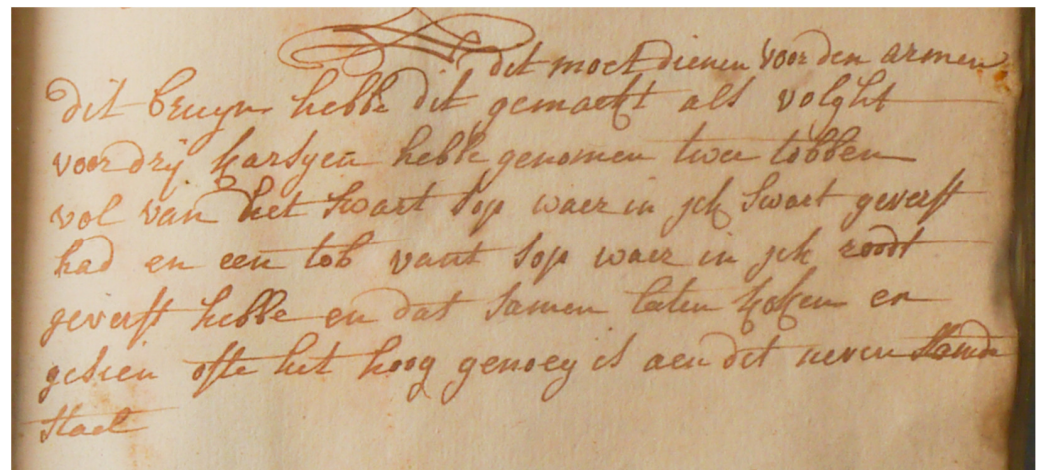 dit moet dienen voor den armen
dit bruyn hebbe dit gemaeckt als volght
voor drij karsyen hebbe genomen twee tobben
vol van het swart sop waer in jck swart geverft
had en een tob vant sop waer in jck roodt
geverft hebbe en dat samen laten koken en
gesien ofte het hoog genoeg is aen dit neven staende
stael